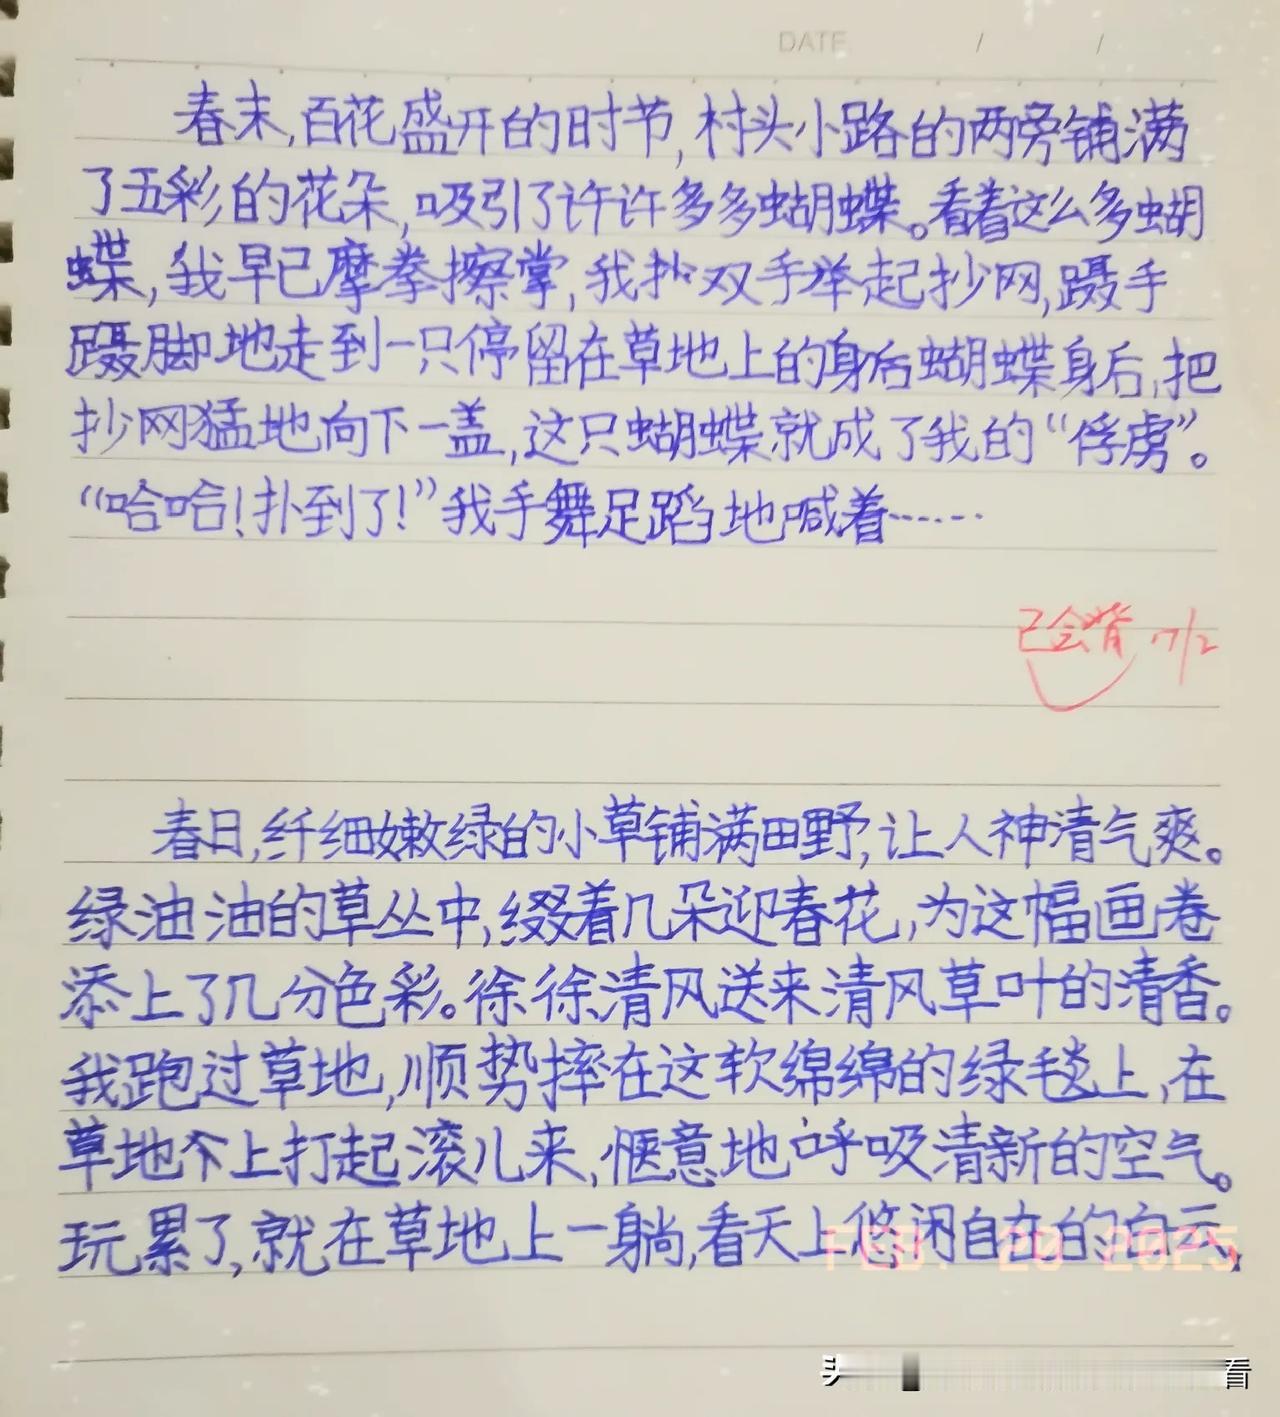 DATE / /
春末,百花盛开的时节,村头小路的两旁铺满
了五彩的花朵,吸引了许许多多蝴蝶。看着这么多蝴
蝶,我早已摩拳擦掌,我扑双手举起抄网,蹑手
蹑脚地走到一只停留在草地上的身后蝴蝶身后,把
抄网猛地向下一盖,这只蝴蝶就成了我的“俘虏”。
“哈哈!扑到了!”我手舞足蹈地喊着……
已会背 17/2
春日,纤细嫩绿的小草铺满田野,让人神清气爽。
绿油油的草丛中,缀着几朵迎春花,为这幅画卷
添上了几分色彩。徐徐清风送来清风草叶的清香。
我跑过草地,顺势摔在这软绵绵的绿毯上,在
草地个上打起滚儿来,惬意地呼吸清新的空气。
玩累了,就在草地上一躺,看天上悠闲自在的白云,
FEB. 20 2025
头 看